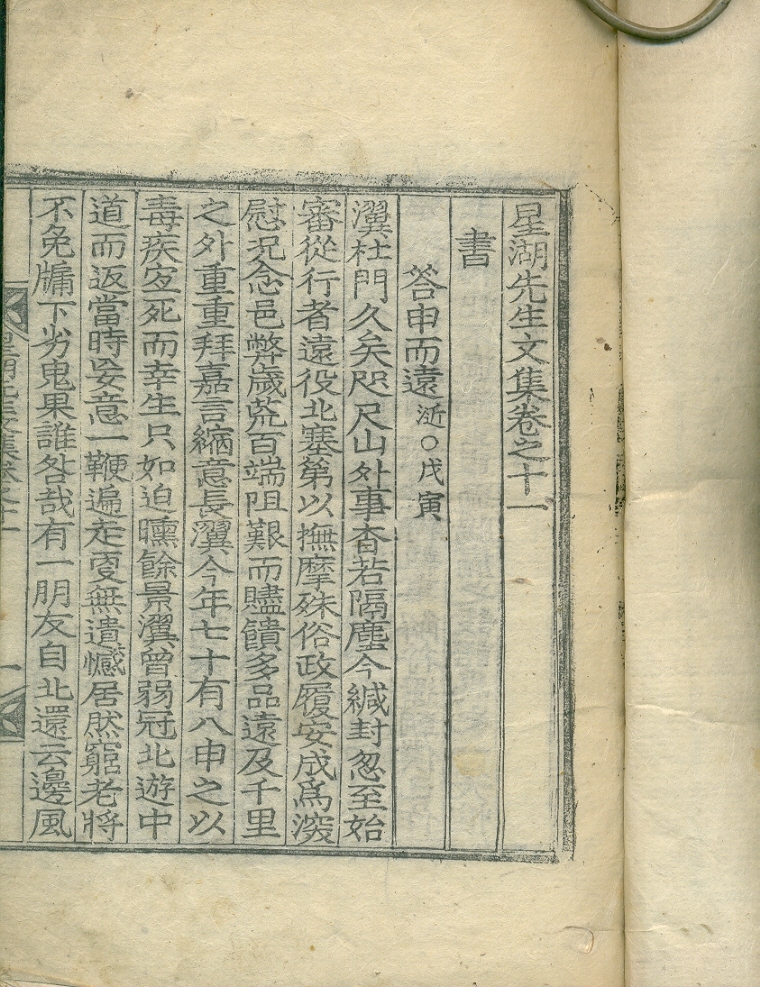 星湖先生文集卷之十一
書
答申而遠 㴋○戊寅
瀷杜門久矣咫尺山外事杳若隔塵今緘封忽至始
審從行者遠役北塞第以撫摩殊俗政履安成爲深
慰况念邑弊歲荒百端阻艱而贐饋多品遠及千里
之外重重拜嘉言縮意長瀷今年七十有八申之以
毒疾㝎死而幸生只如迫曛餘景瀷曾弱冠北遊中
道而返當時妄意一鞭遍走更無遺憾居然窮老將
不免牖下劣鬼果誰咎哉有一朋友自北還云邊風
星湖先生文集卷之十一
一